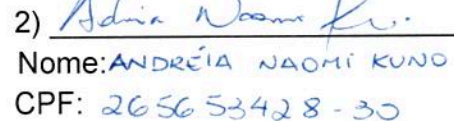 2)
Nome: ANDRÉIA NAOMI KUNO
CPF: 265653428-30